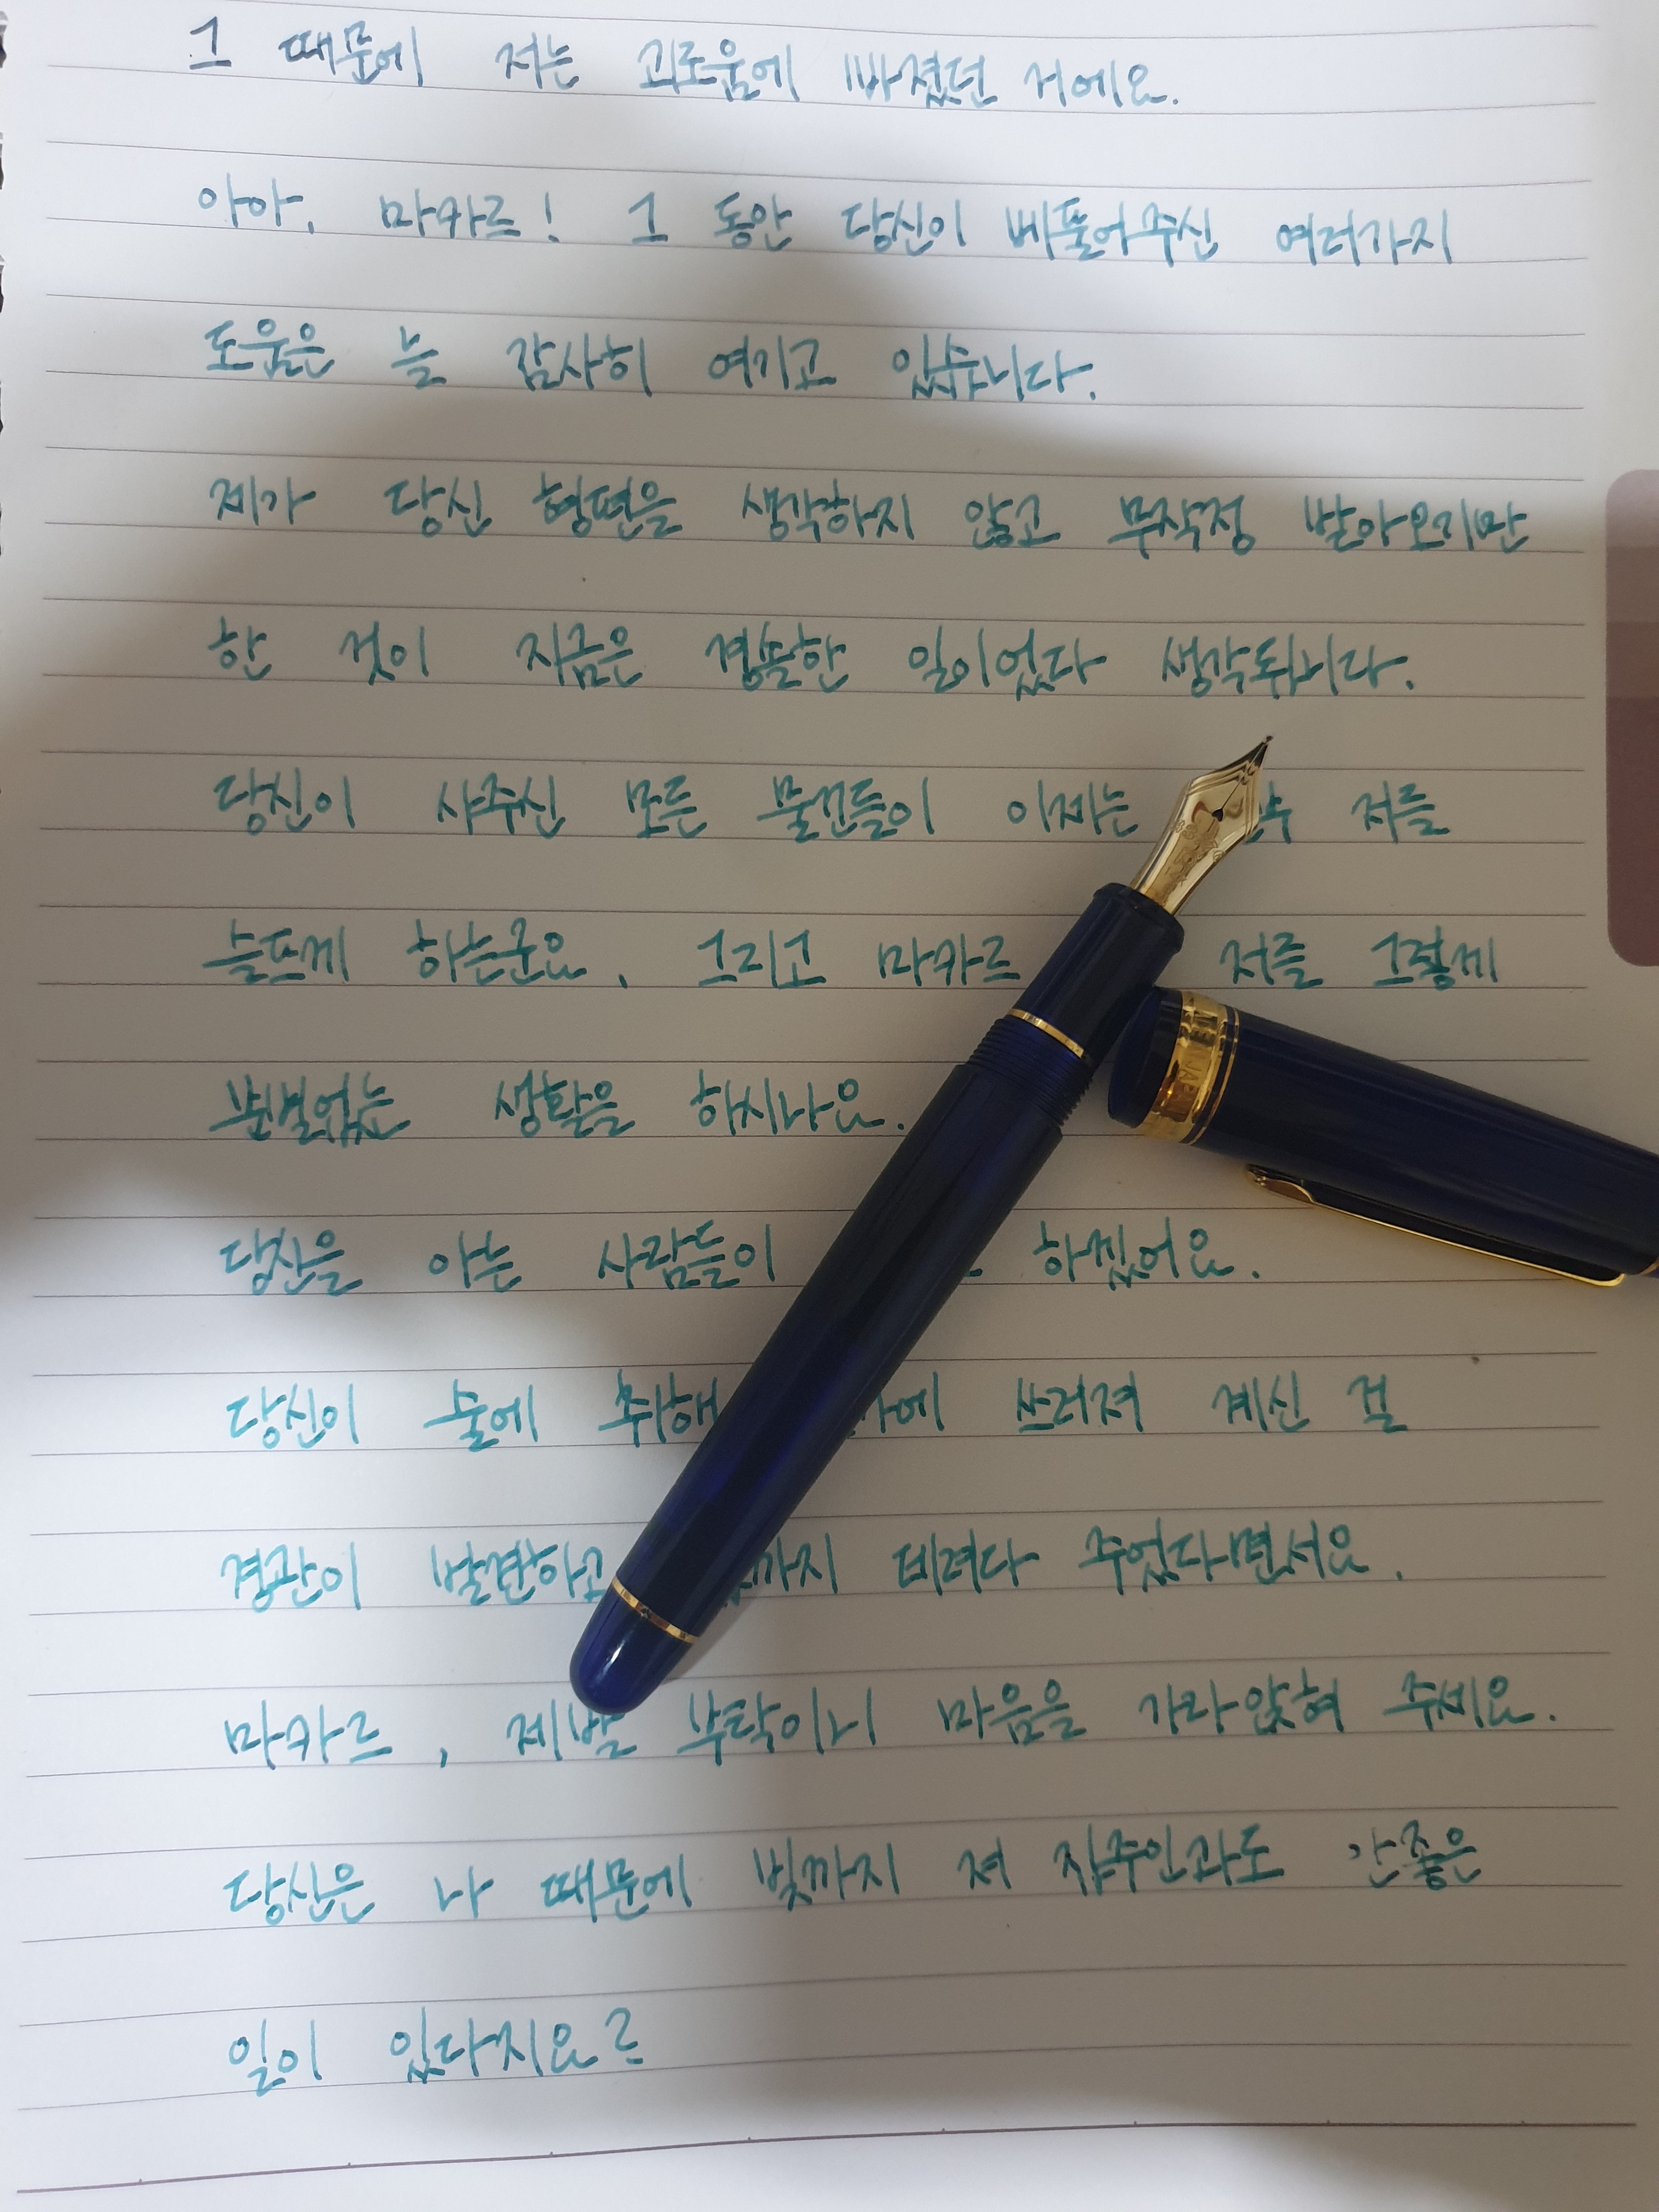 그 때문에 저는 괴로움에 빠졌던 거에요.
아아, 마카르! 그 동안 당신이 베풀어주신 여러가지
도움은 늘 감사히 여기고 있습니다.
제가 당신 형편을 생각하지 않고 무작정 받아오기만
한 것이 지금은 경솔한 일이었다 생각됩니다.
당신이 사주신 모든 물건들이 이제는 저를
슬프게 하는군요. 그리고 마카르 저를 그렇게
분별없는 생활을 하시나요.
당신을 아는 사람들이 하겠어요.
당신이 술에 취해 쓰러져 계신 걸
경관이 발견하고 데려다 주었다면서요.
마카르, 제발 부탁이니 마음을 가라앉혀 주세요.
당신은 나 때문에 빚까지 져 집주인과도 안좋은
일이 있다지요?